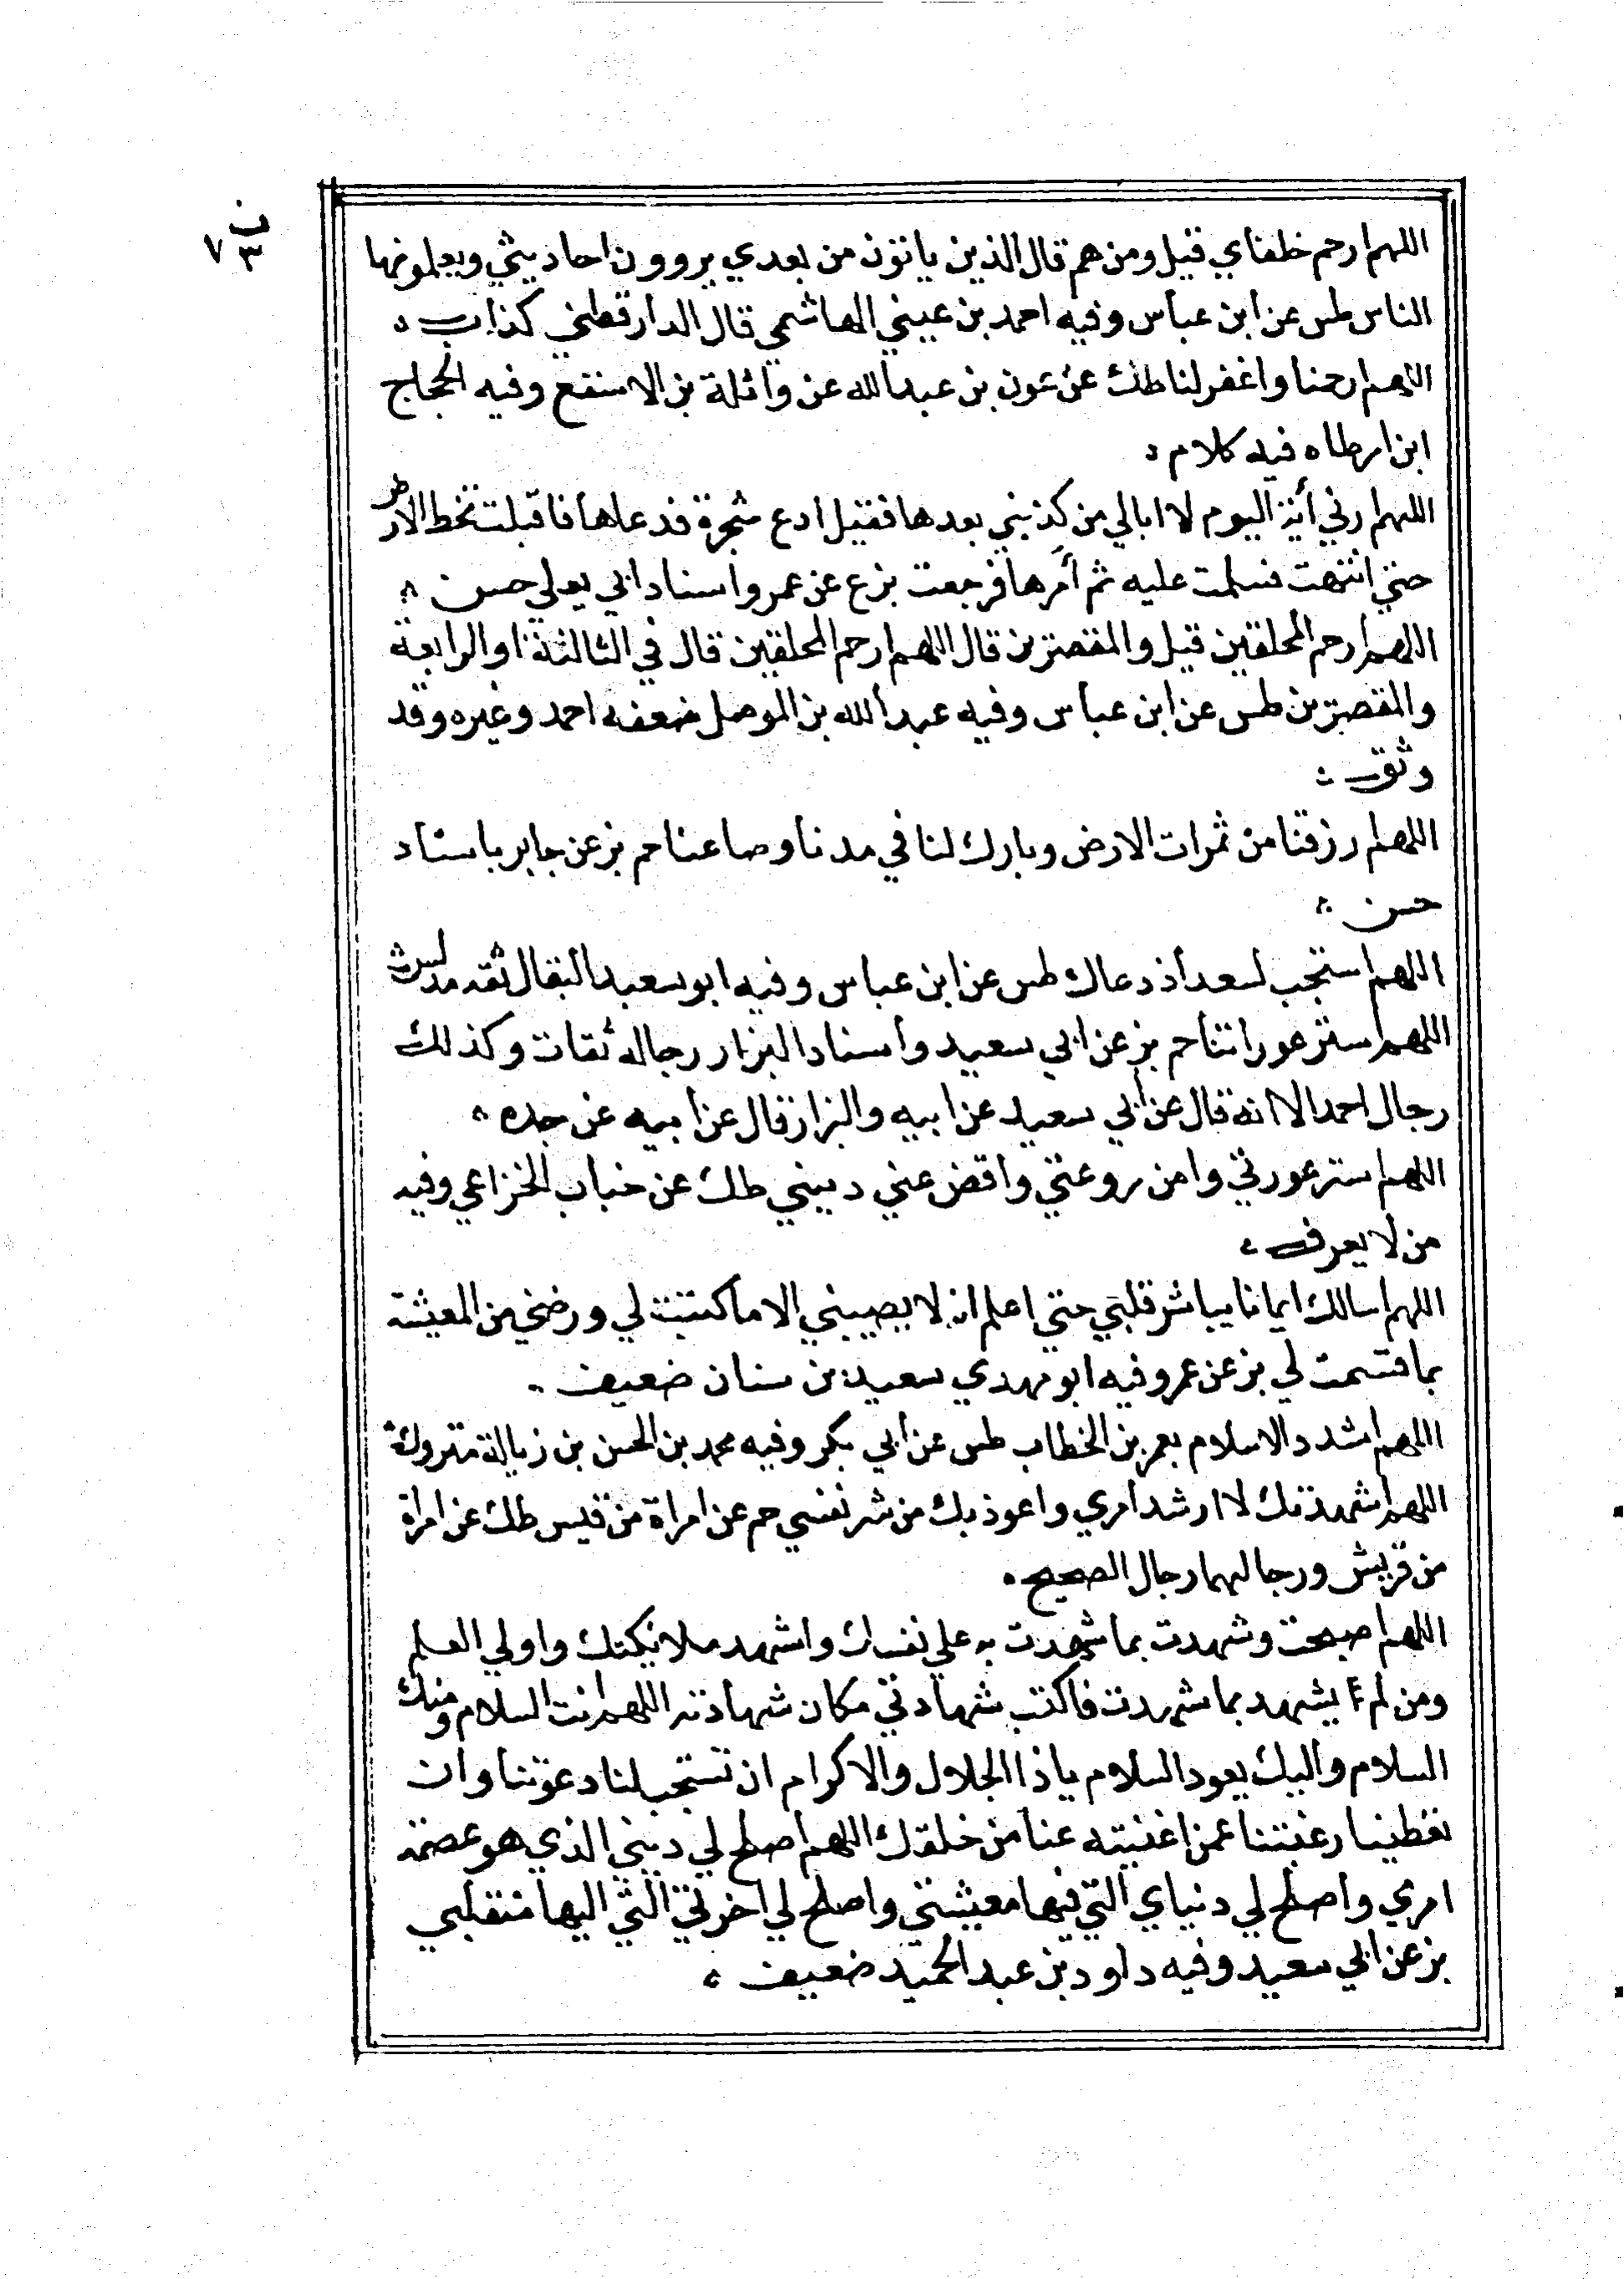 ن
٧٣
اللهم ارحم خلفاي قيل ومن هم قال الذين ياتون من بعدي يروون احاديثي ويعلمونها
الناس طس عن ابن عباس وفيه احمد بن عيسي الهاشمي قال الدارقطني كذاب
اللهم ارحمنا واغفر لنا طك عن عون بن عبد الله عن واثلة بن الاسقع وفيه الحجاج
ابن ارطاه فيه كلام
اللهم ارني أية اليوم لا ابالي من كذبني بعدها فقيل ادع شجرة فدعاها فاقبلت تخط الارض
حتي انتهت فسلمت عليه ثم أمرها فرجعت بزع عن عمر واسناد ابي يعلي حسن
اللهم ارحم المحلقين قيل والمقصرين قال اللهم ارحم المحلقين قال في الثالثة او الرابعة
والمقصرين طس عن ابن عباس وفيه عبد الله بن الموصل ضعفه احمد وغيره وقد
وثق
اللهم ارزقنا من ثمرات الارض وبارك لنا في مدنا وصاعنا حم بز عن جابر باسناد
حسن
اللهم استجب لسعد اذ دعاك طس عن ابن عباس وفيه ابو سعيد البقال ثقه مدلس
اللهم استر عوراتنا حم بز عن ابي سعيد واسناد البزار رجاله ثقات وكذلك
رجال احمد الا انه قال عن أبي سعيد عن ابيه والبزار قال عن ابيه عن جده
اللهم استر عورتي وامن روعتي واقض عني ديني طك عن خباب الخزاعي وفيه
من لا يعرف
اللهم اسالك ايمانا يباشر قلبي حتي اعلم ان لا يصيبني الا ما كتبت لي ورضني من المعيشة
بما قسمت لي بز عن عمر وفيه ابو مهدي سعيد بن سنان ضعيف
اللهم اشدد الاسلام بعمر بن الخطاب طس عن ابي بكر وفيه محمد بن الحسن بن زبالة متروك
اللهم لا ارشد امري واعوذ بك من شر نفسي حم عن امراة من قيس طك عن امراة
من قريش ورجالهما رجال الصحيح
اللهم اصبحت وشهدت بما شهدت به علي نفسك واشهد ملائيكتك واولي العلم
ومن لم يشهد بما شهدت فاكتب شهادتي مكان شهادته اللهم انت السلام ومنك
السلام واليك يعود السلام ياذا الجلال والاكرام ان تستجب لنا دعوتنا وان
تعطينا رغبتنا عمن اغنيته عنا من خلقك اللهم اصلح لي ديني الذي هو عصمة
امري واصلح لي دنياي التي فيها معيشتي واصلح لي اخرتي التي اليها منقلبي
بز عن ابي سعيد وفيه داود بن عبد الحميد ضعيف